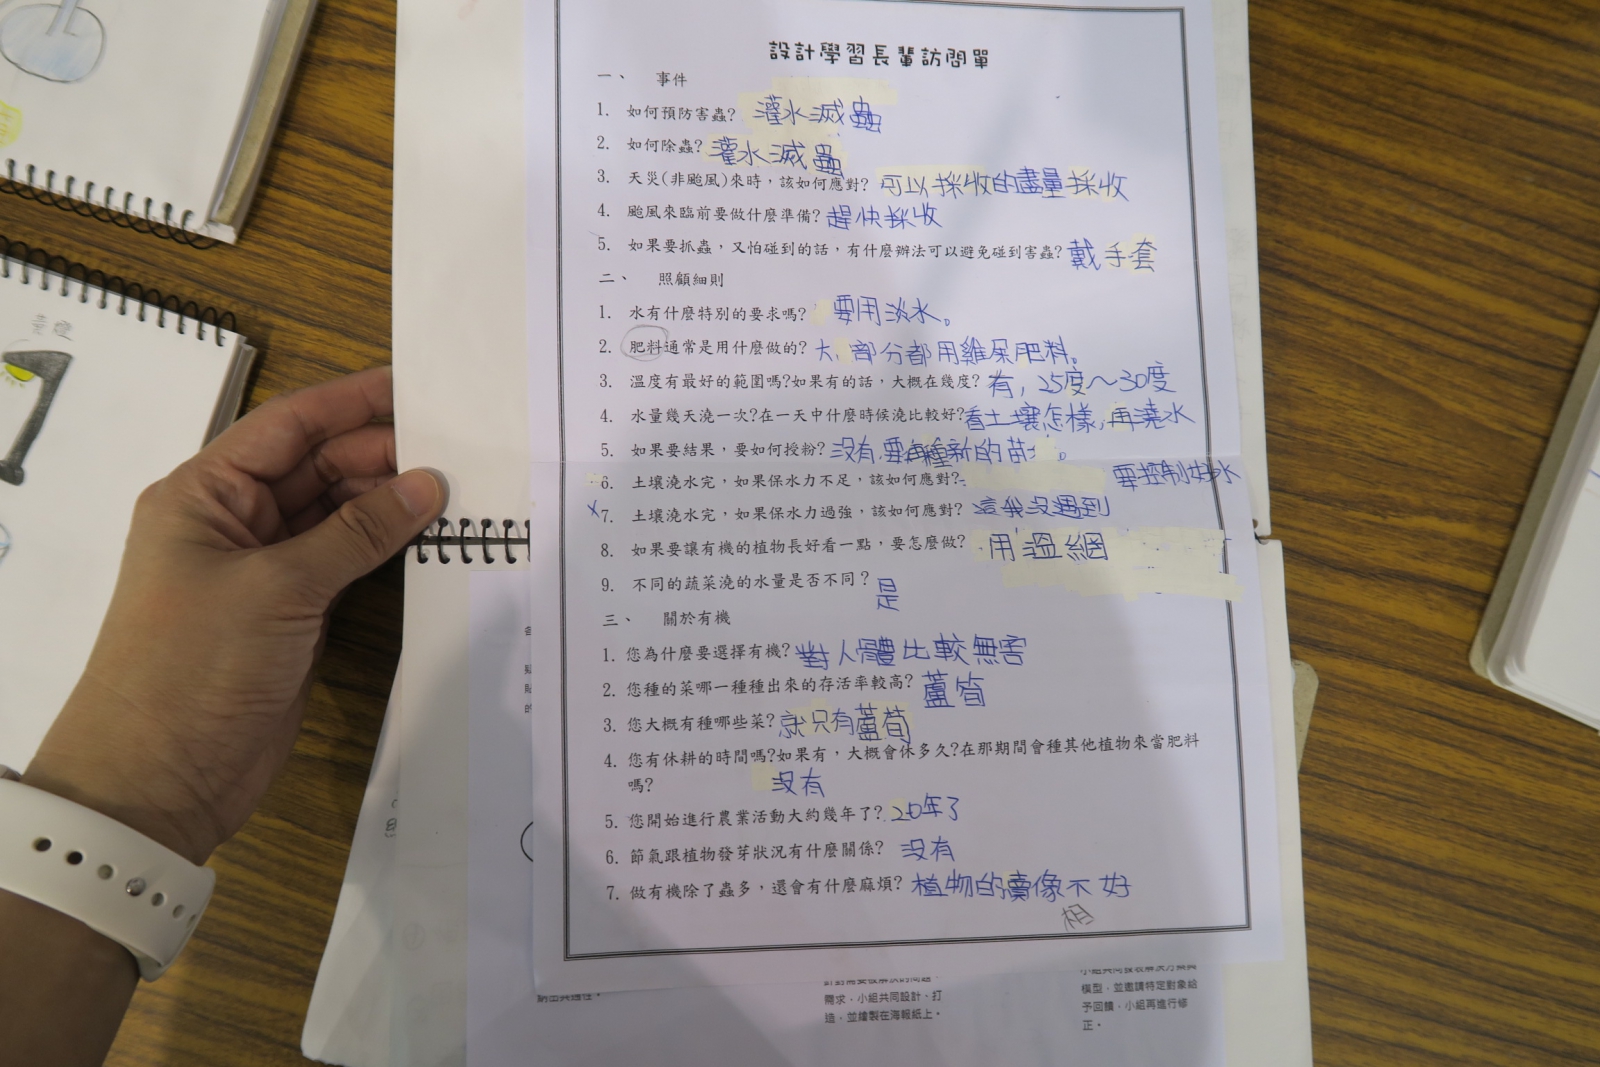 設計學習長輩訪問單
一、 事件
1. 如何預防害蟲? 灌水滅蟲
2. 如何除蟲? 灌水滅蟲
3. 天災(非颱風)來時，該如何應對? 可以採收的盡量採收
4. 颱風來臨前要做什麼準備? 趕快採收
5. 如果要抓蟲，又怕碰到的話，有什麼辦法可以避免碰到害蟲? 戴手套
二、 照顧細則
1. 水有什麼特別的要求嗎? 要用淡水。
2. 肥料通常是用什麼做的? 大部分都用雞屎肥料。
3. 溫度有最好的範圍嗎?如果有的話，大概在幾度? 有，25度～30度
4. 水量幾天澆一次?在一天中什麼時候澆比較好? 看土壤怎樣，再澆水
5. 如果要結果，要如何授粉? 沒有,要再種新的苗。
6. 土壤澆水完，如果保水力不足，該如何應對? 要控制好水
x 7. 土壤澆水完，如果保水力過強，該如何應對? 這我沒遇到
8. 如果要讓有機的植物長好看一點，要怎麼做? 用溫網
9. 不同的蔬菜澆的水量是否不同? 是
三、 關於有機
1. 您為什麼要選擇有機? 對人體比較無害
2. 您種的菜哪一種種出來的存活率較高? 蘆筍
3. 您大概有種哪些菜? 就只有蘆筍
4. 您有休耕的時間嗎?如果有，大概會休多久?在那期間會種其他植物來當肥料
嗎? 沒有
5. 您開始進行農業活動大約幾年了? 20年了
6. 節氣跟植物發芽狀況有什麼關係? 沒有
7. 做有機除了蟲多，還會有什麼麻煩? 植物的賣像不好
相
需求，小組共同設計、打
造，並繪製在海報紙上。
模型，並邀請特定對象給
予回饋，小組再進行修
正。